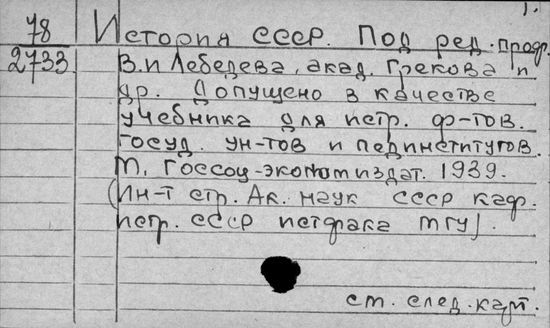 1.
78 История СССР. Под ред. проф.
2733 В.И Лебедева, акад. Грекова и
др. Допущено в качестве
учебника для истр. ф-тов.
госуд. ун-тов и пединститутов.
М, Госсоц-экономиздат. 1939.
(Ин-т стр. Ак. наук СССР каф.
истр. СССР истфака МГУ).
см. след. карт.